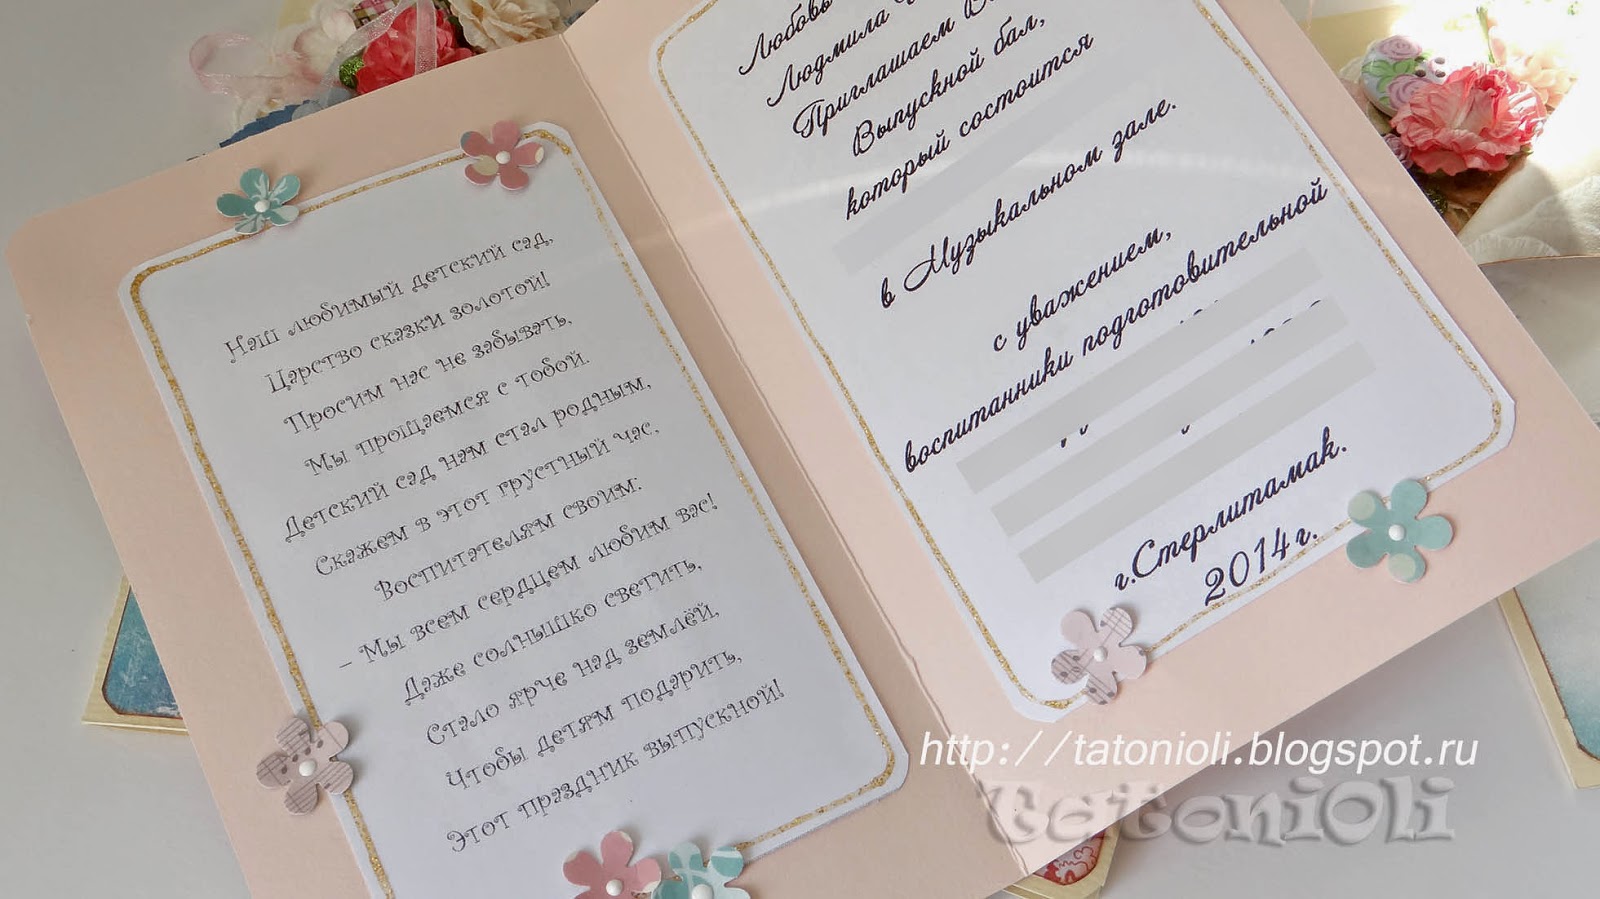 Наш любимый детский сад,
Царство сказки золотой!
Просим нас не забывать,
Мы прощаемся с тобой.
Детский сад нам стал родным,
Скажем в этот грустный час,
Воспитателям своим:
– Мы всем сердцем любим вас!
Даже солнышко светить,
Стало ярче над землёй,
Чтобы детям подарить,
Этот праздник выпускной!
Любовь
Людмила
Приглашаем
Выпускной бал,
который состоится
в Музыкальном зале.
с уважением,
воспитанники подготовительной
г.Стерлитамак.
2014 г.
http://tatonioli.blogspot.ru
TatoniOli